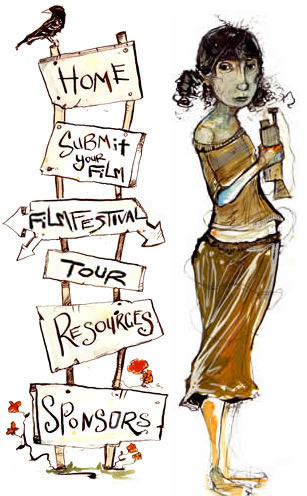 HOME
SUBMiT
YOUR
FiLM
FiLMFESTiVAL
TOUR
RESOURCES
SPONSORS